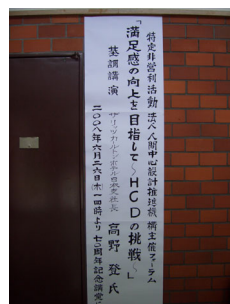 特定非営利活動法人人間中心設計推進機構主催フォーラム
「満足感の向上を目指して〜HCDの挑戦〜」
基調講演 ザ・リッツ・カールトンホテル日本支社長 高野 登 氏
二〇〇八年六月二六日(木)一四時より七三周年記念講堂